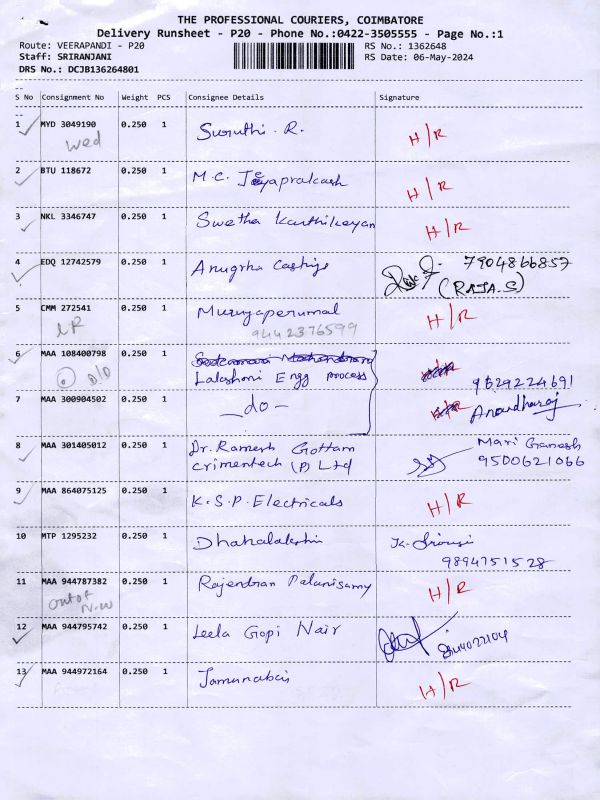 THE PROFESSIONAL COURIERS, COIMBATORE
Delivery Runsheet - P20 - Phone No.:0422-3505555 - Page No.:1
Route: VEERAPANDI - P20 RS No.: 1362648
Staff: SRIRANJANI RS Date: 06-May-2024
DRS No.: DCJB136264801
S No Consignment No Weight PCS Consignee Details Signature
1 MYD 3049190 0.250 1 Suruthi. R. H/R
Wed
2 BTU 118672 0.250 1 M.C. Jeyaprakash H/R
3 NKL 3346747 0.250 1 Swetha Karthikeyan H/R
4 EDQ 12742579 0.250 1 Anugrha Castings 7904866857
(RAJA.S)
5 CMM 272541 0.250 1 Murugaperumal H/R
LR 9442376599
6 MAA 108400798 0.250 1
D/D Lakshmi Engg process 9629224691
7 MAA 300904502 0.250 1 -do- Anandharaj
8 MAA 301405012 0.250 1 Dr. Ramesh Gottam Mari Ganesh
crimentech (P) Ltd 9500621066
9 MAA 864075125 0.250 1 K.S.P. Electricals H/R
10 MTP 1295232 0.250 1 K.
9894751528
11 MAA 944787382 0.250 1 Rajendran Palanisamy H/R
out of
12 MAA 944795742 0.250 1 Leela Gopi Nair
13 MAA 944972164 0.250 1 Jamunabai H/R